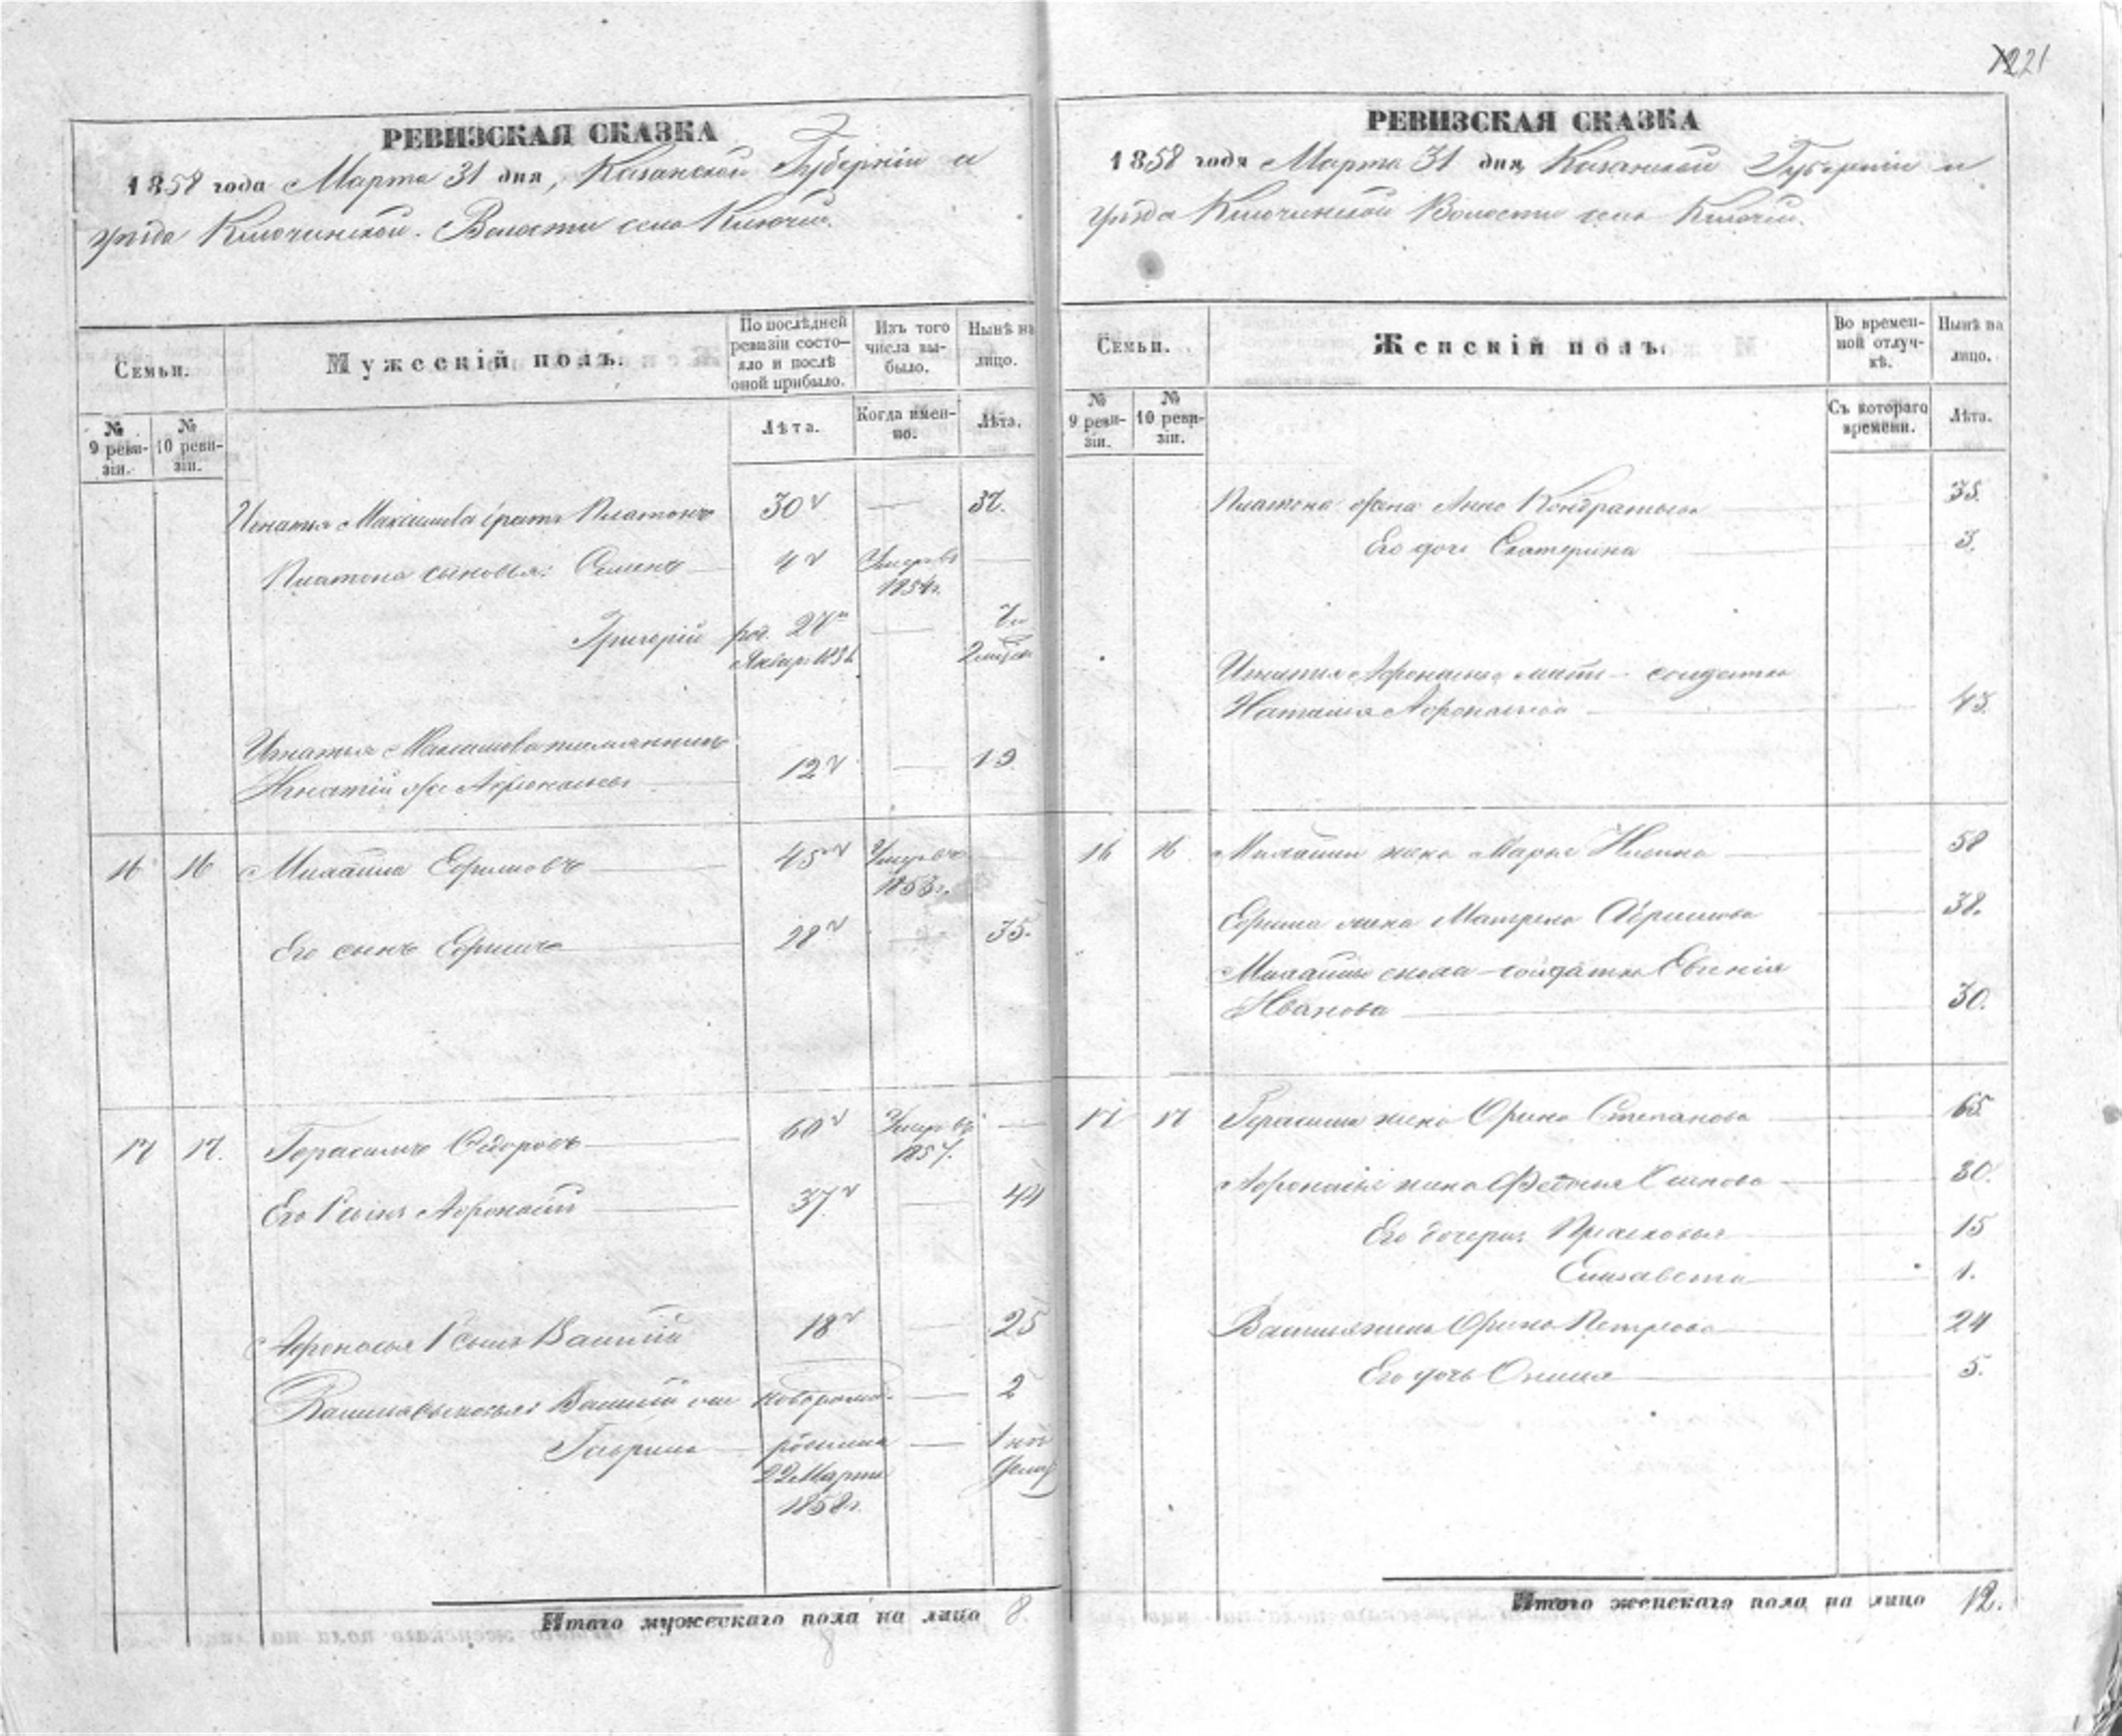 221
РЕВИЗСКАЯ СКАЗКА
1858 года Марта 31 дня, Казанской Губерніи и
уѣзда Ключинской Волости села Ключи.
Семьи.
Мужескій полъ.
По послѣдней ревизіи состояло и послѣ оной прибыло.
Изъ того числа выбыло.
Нынѣ на лицо.
№ 9 ревизіи.
№ 10 ревизіи.
Лѣта.
Когда именно.
Лѣта.
Игнатья Максимова братъ Платонъ 30 — 37.
Платона сыновья: Семенъ 4 Умеръ въ 1854 г. —
Григорій род. 27 Января —
Игнатья Максимова племянникъ
Игнатій же Афонасьевъ 12 — 19
16 16 Михайла Ефимовъ 45 Умеръ въ 1853 г.
Его сынъ Ефимъ 28 35.
17 17. Герасимъ Ѳедоровъ 60 Умеръ въ 1857. —
Его 1 сынъ Афонасій 37 — 44
Афонасья 1 сынъ Василій 18 — 25
Василья сыновья: Василій новорожд. — 2
Гаврила — родился 22 Марта 1858 г. —
Итого мужескаго пола на лицо 8.
РЕВИЗСКАЯ СКАЗКА
1858 года Марта 31 дня, Казанской Губерніи и
уѣзда Ключинской Волости села Ключи.
Семьи.
Женскій полъ.
Во временной отлучкѣ.
Нынѣ на лицо.
№ 9 ревизіи.
№ 10 ревизіи.
Съ котораго времени.
Лѣта.
Платона жена Анна Кондратьева 35.
Его дочь Екатерина 3.
Игнатья Афонасьева мать – солдатка
Наталья Афонасьева 43.
16 16 Михайлы жена Марья Ильина 58
Ефима жена Матрена Абрамова 38.
Михайлы сноха – солдатка Евгенія
Иванова 30.
17 17 Герасима жена Орина Степанова 65
Афонасья жена Федосья 30.
Его дочери: Прасковья 15
Елизавета 1.
Василья жена Орина Петрова 24
Его дочь 5.
Итого женскаго пола на лицо 12.